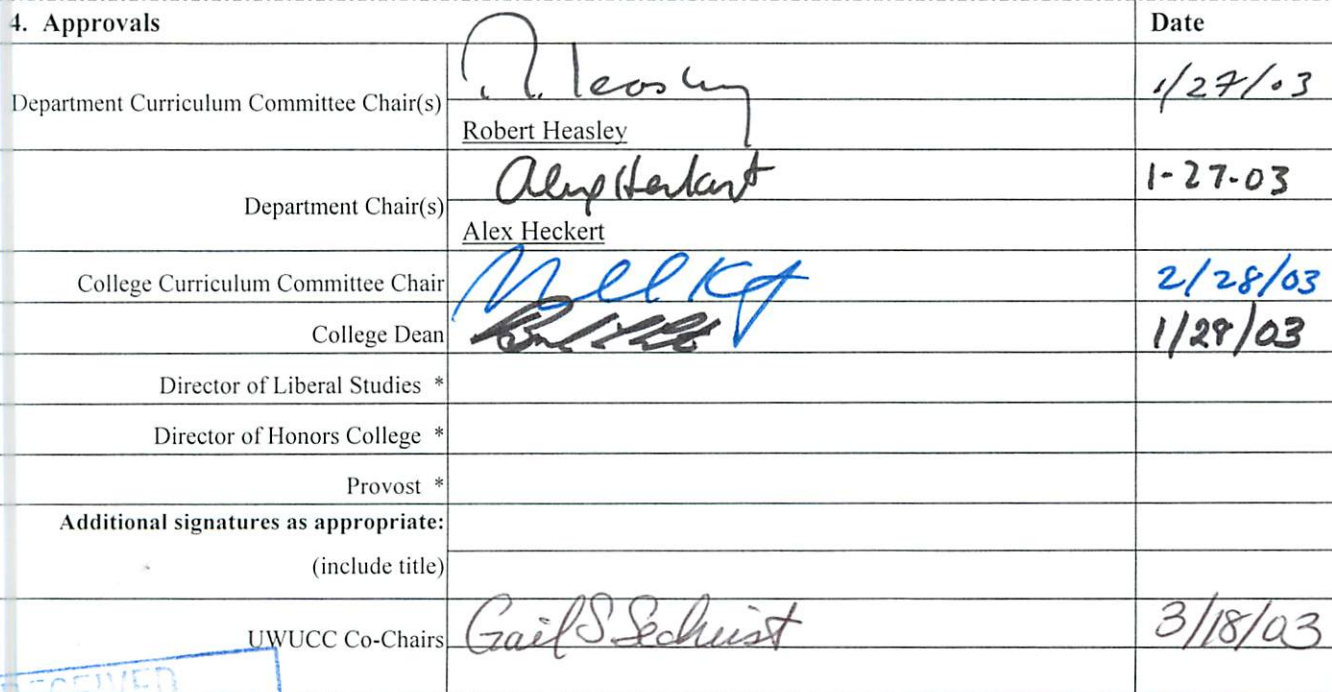 4. Approvals Date
Department Curriculum Committee Chair(s) 1/27/03
Robert Heasley
Department Chair(s) 1-27-03
Alex Heckert
College Curriculum Committee Chair 2/28/03
College Dean 1/29/03
Director of Liberal Studies *
Director of Honors College *
Provost *
Additional signatures as appropriate:
(include title)
UWUCC Co-Chairs Gail S Sechrist 3/18/03
RECEIVED